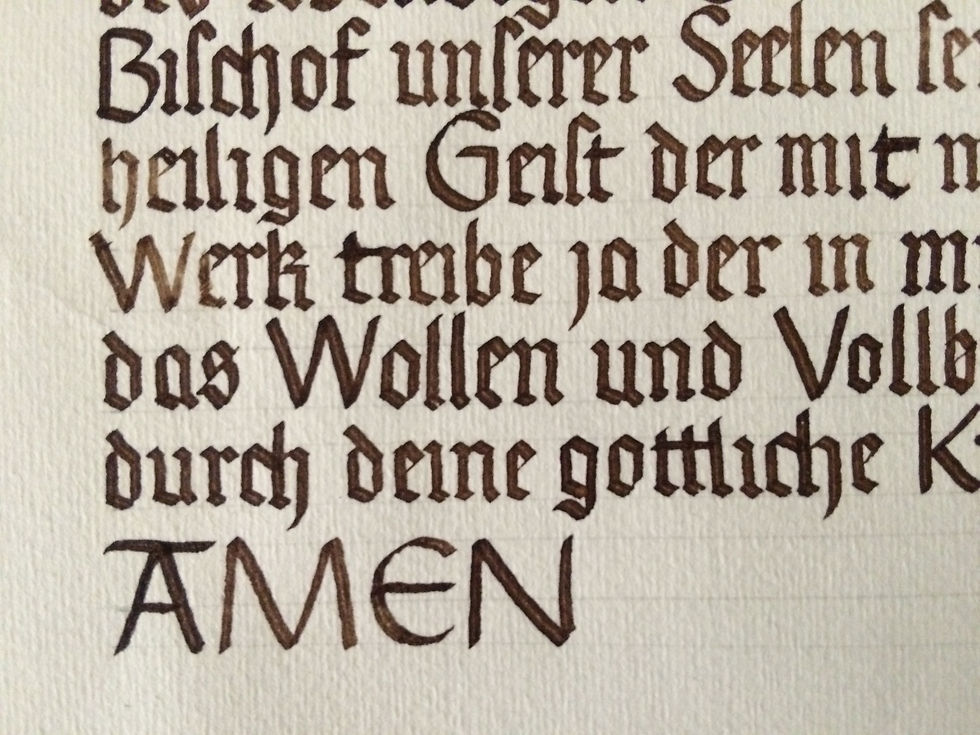 Bischof unserer Seelen
heiligen Geist der mit
Werk treibe ja der in
das Wollen und
durch deine gottliche
AMEN